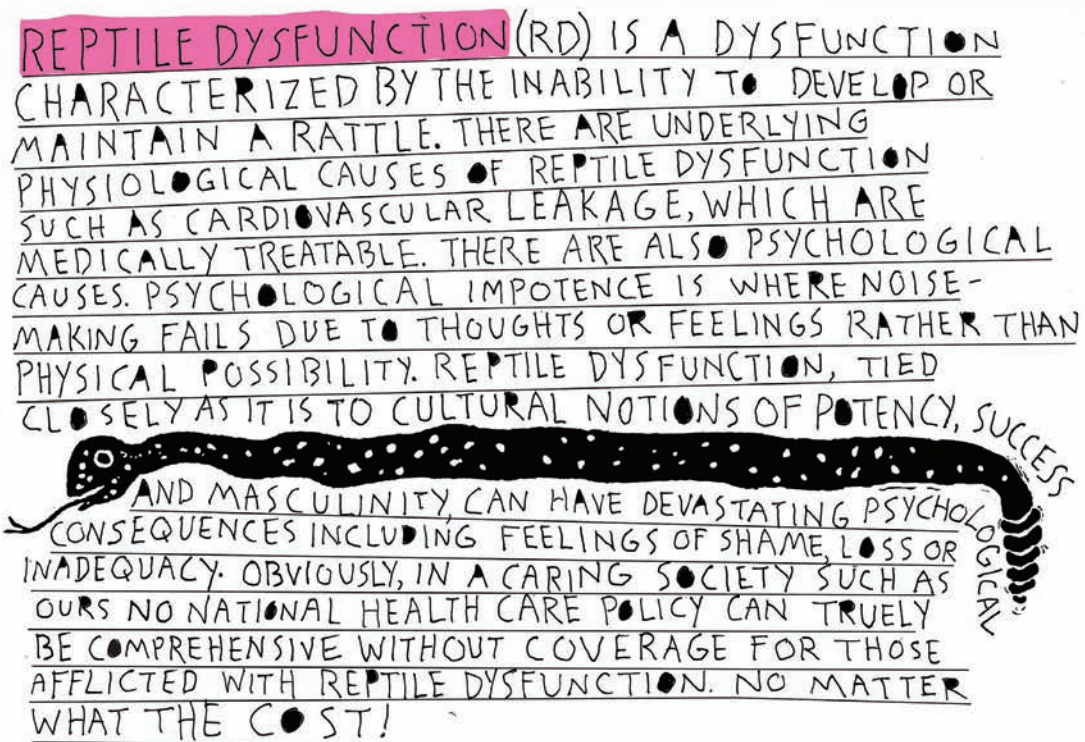 REPTILE DYSFUNCTION (RD) IS A DYSFUNCTION
CHARACTERIZED BY THE INABILITY TO DEVELOP OR
MAINTAIN A RATTLE. THERE ARE UNDERLYING
PHYSIOLOGICAL CAUSES OF REPTILE DYSFUNCTION
SUCH AS CARDIOVASCULAR LEAKAGE, WHICH ARE
MEDICALLY TREATABLE. THERE ARE ALSO PSYCHOLOGICAL
CAUSES. PSYCHOLOGICAL IMPOTENCE IS WHERE NOISE-
MAKING FAILS DUE TO THOUGHTS OR FEELINGS RATHER THAN
PHYSICAL POSSIBILITY. REPTILE DYSFUNCTION, TIED
CLOSELY AS IT IS TO CULTURAL NOTIONS OF POTENCY, SUCCESS
AND MASCULINITY, CAN HAVE DEVASTATING PSYCHOLOGICAL
CONSEQUENCES INCLUDING FEELINGS OF SHAME, LOSS OR
INADEQUACY. OBVIOUSLY, IN A CARING SOCIETY SUCH AS
OURS NO NATIONAL HEALTH CARE POLICY CAN TRUELY
BE COMPREHENSIVE WITHOUT COVERAGE FOR THOSE
AFFLICTED WITH REPTILE DYSFUNCTION. NO MATTER
WHAT THE COST!